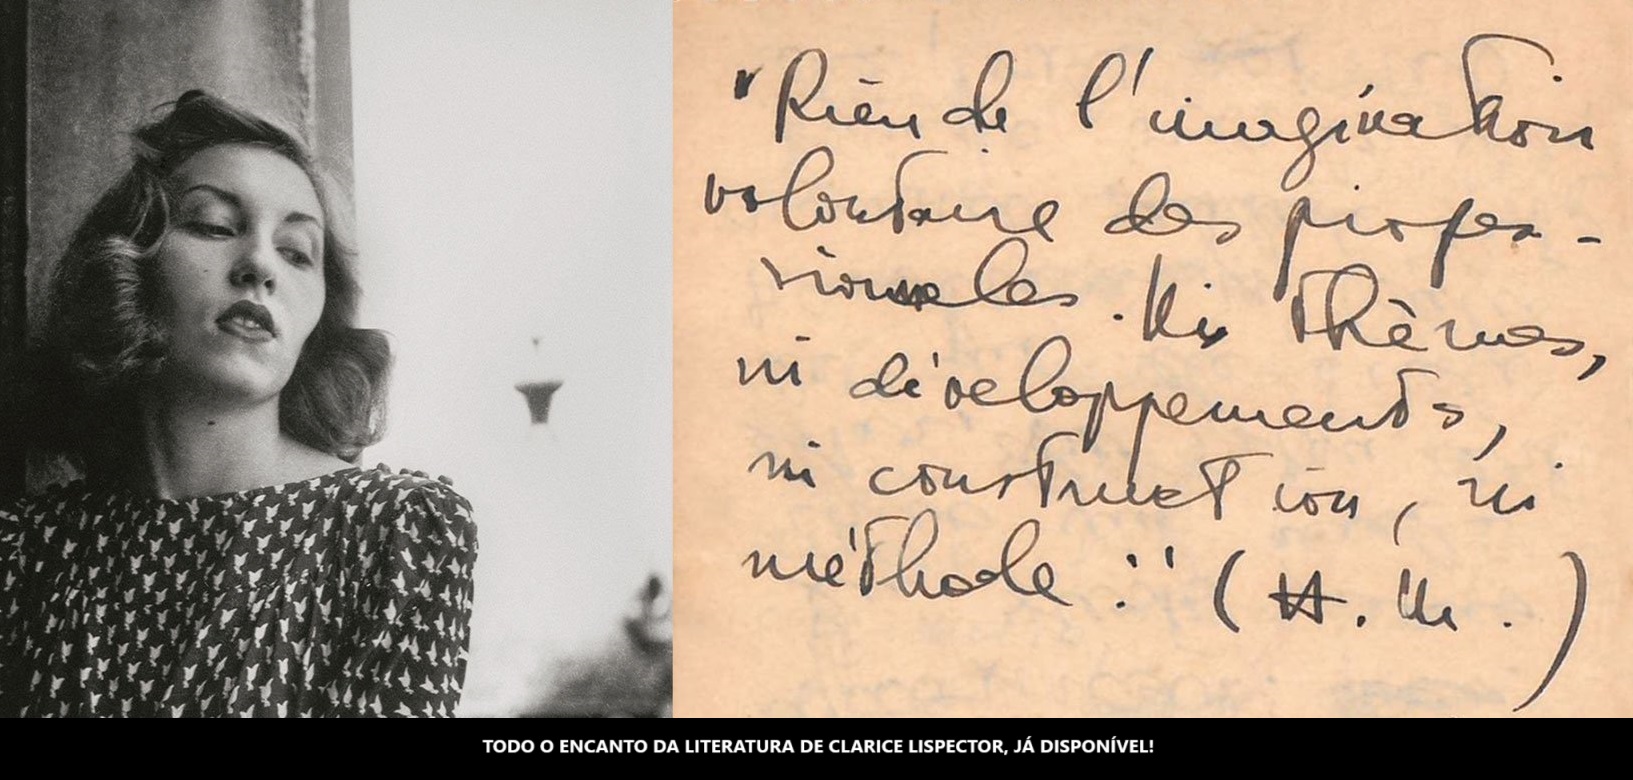 "Rien de l'imagination
volontaire des profes-
sionnels. Ni thèmes,
ni développements,
ni construction, ni
méthode." (H. M.)
TODO O ENCANTO DA LITERATURA DE CLARICE LISPECTOR, JÁ DISPONÍVEL!